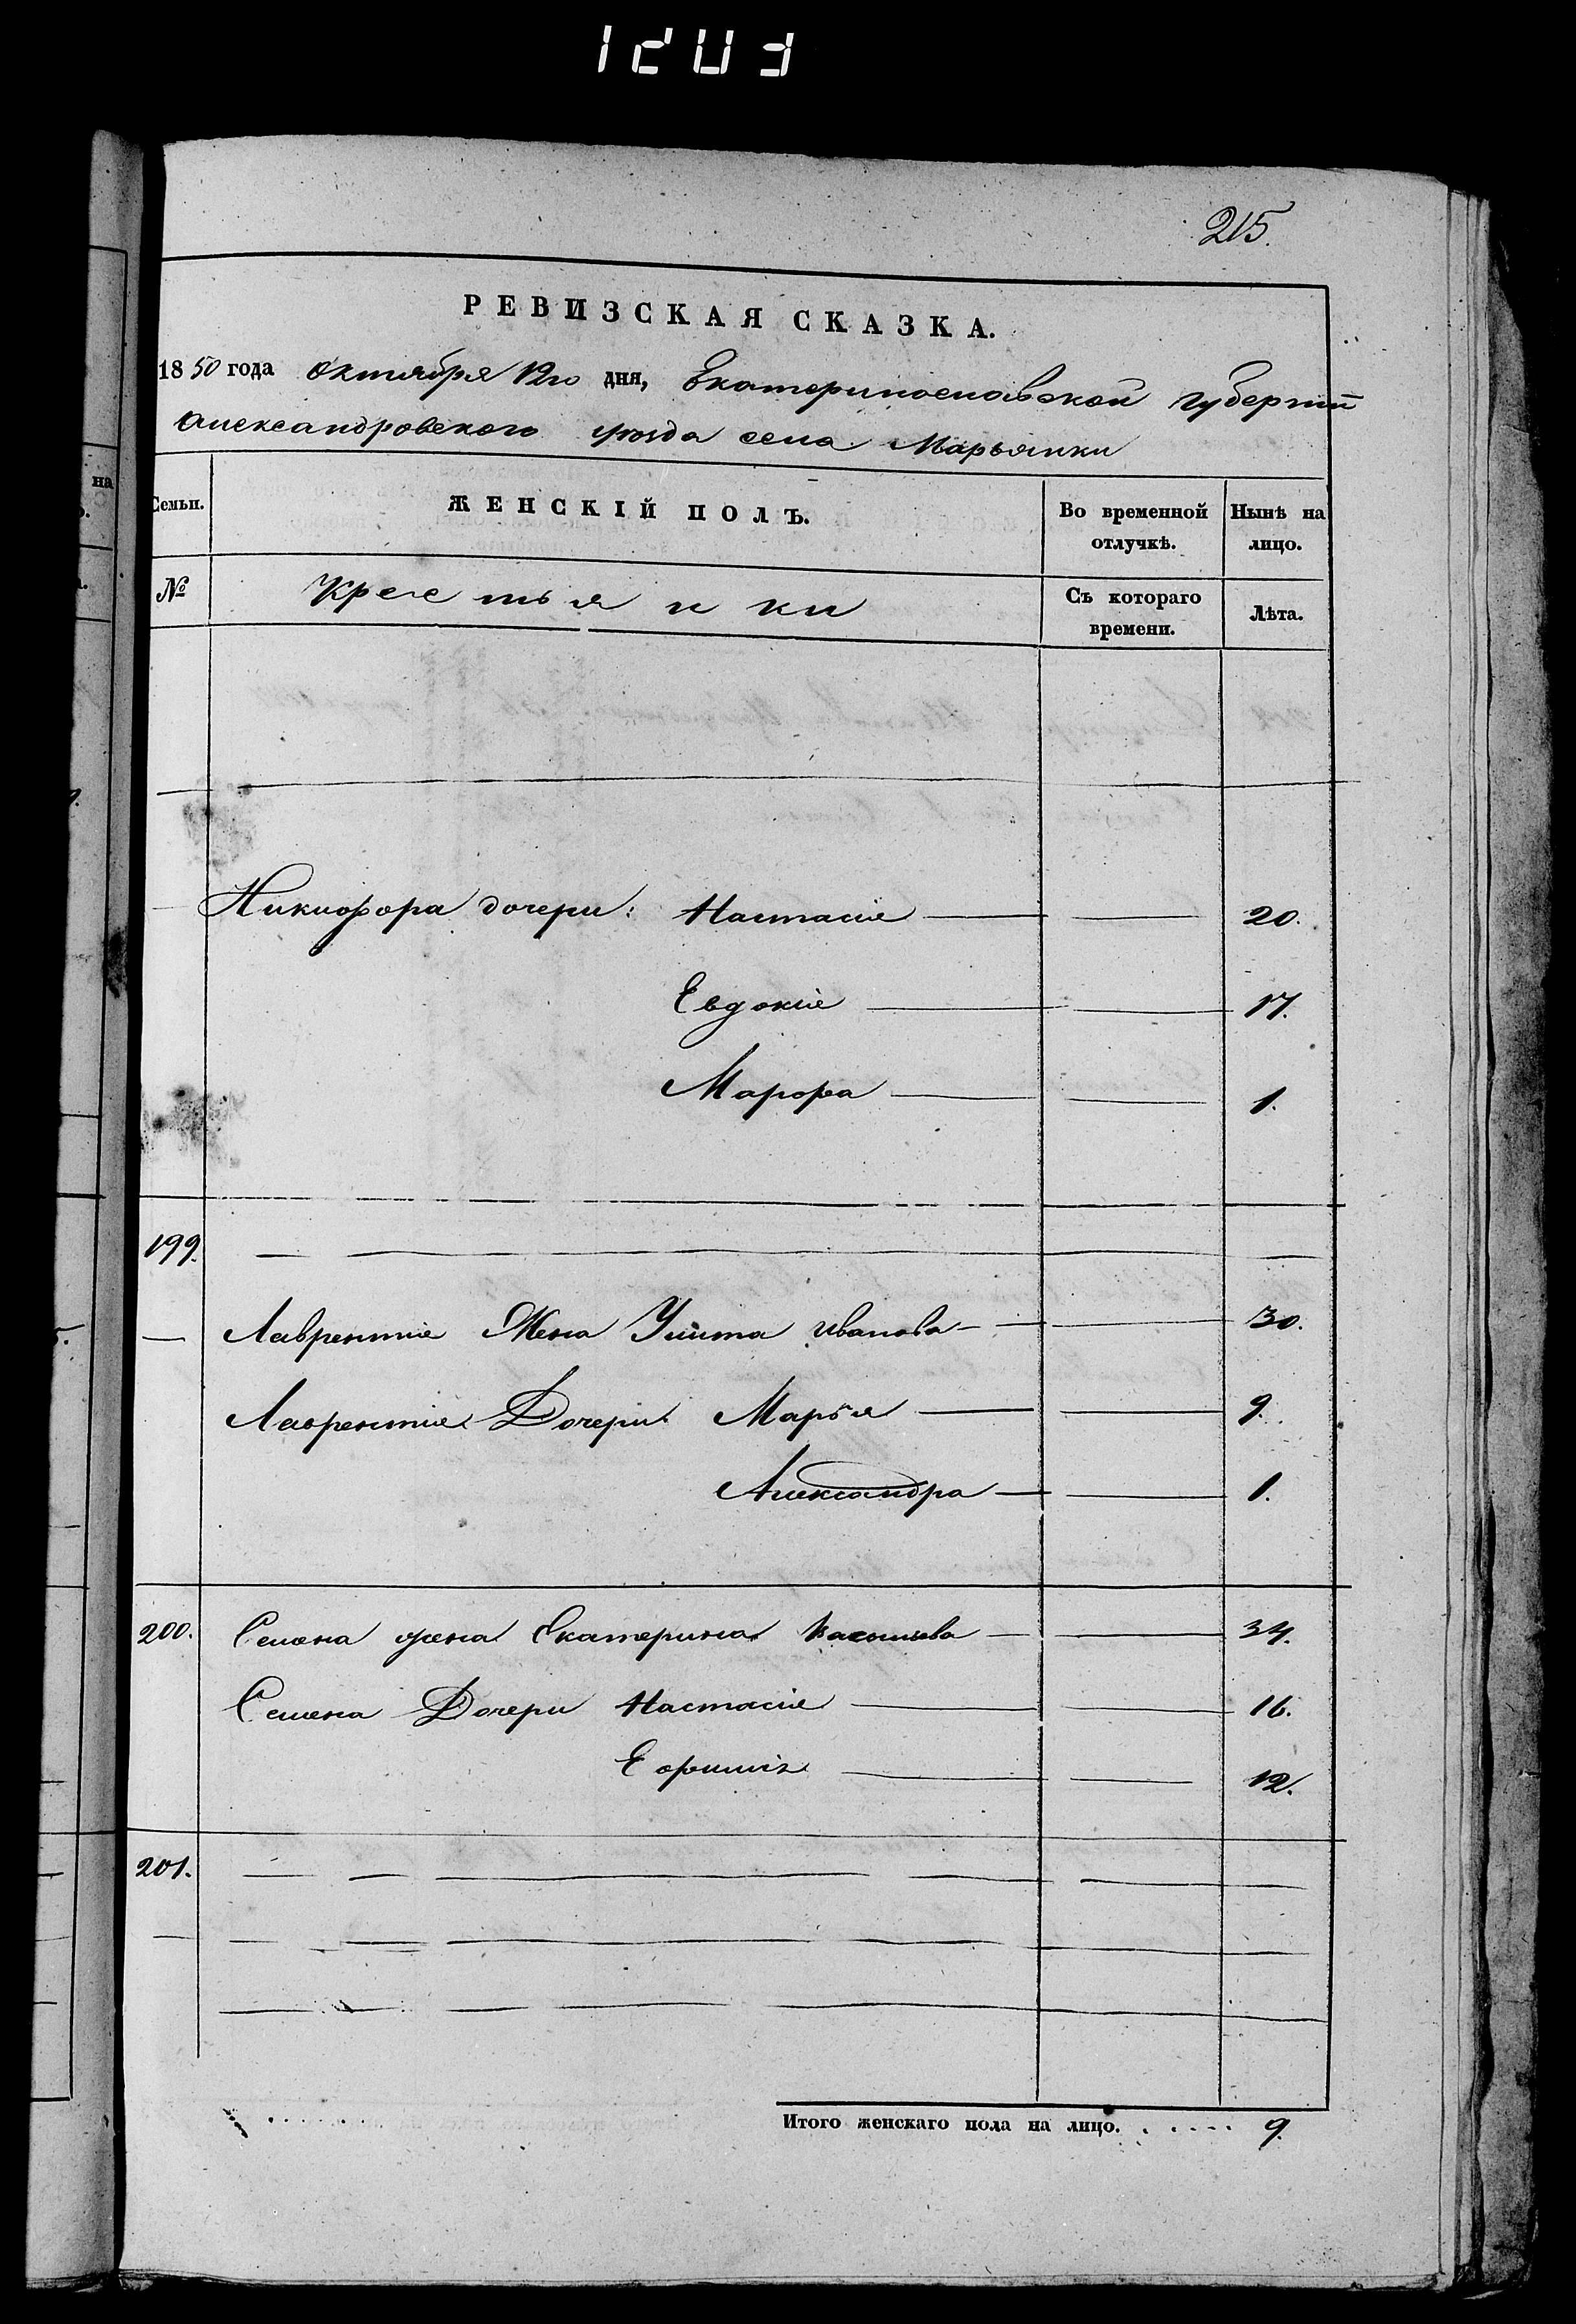 1203
215.
РЕВИЗСКАЯ СКАЗКА.
1850 года Октября 12го дня, Екатеринославской губерніи
Александровского уезда села Марьянки
Семьи. ЖЕНСКІЙ ПОЛЪ. Во временной отлучкѣ. Нынѣ на лицо.
№ Крестьянки Съ котораго времени. Лѣта.
Никифора дочери: Настасія 20.
Евдокія 17.
Марфа 1.
199.
Лаврентія Жена Улита Иванова 30.
Лаврентія Дочери Марья 9.
Александра 1.
200. Семена жена Екатерина Васильева 34.
Семена Дочери Настасія 16.
12.
201.
Итого женскаго пола на лицо. 9.
на